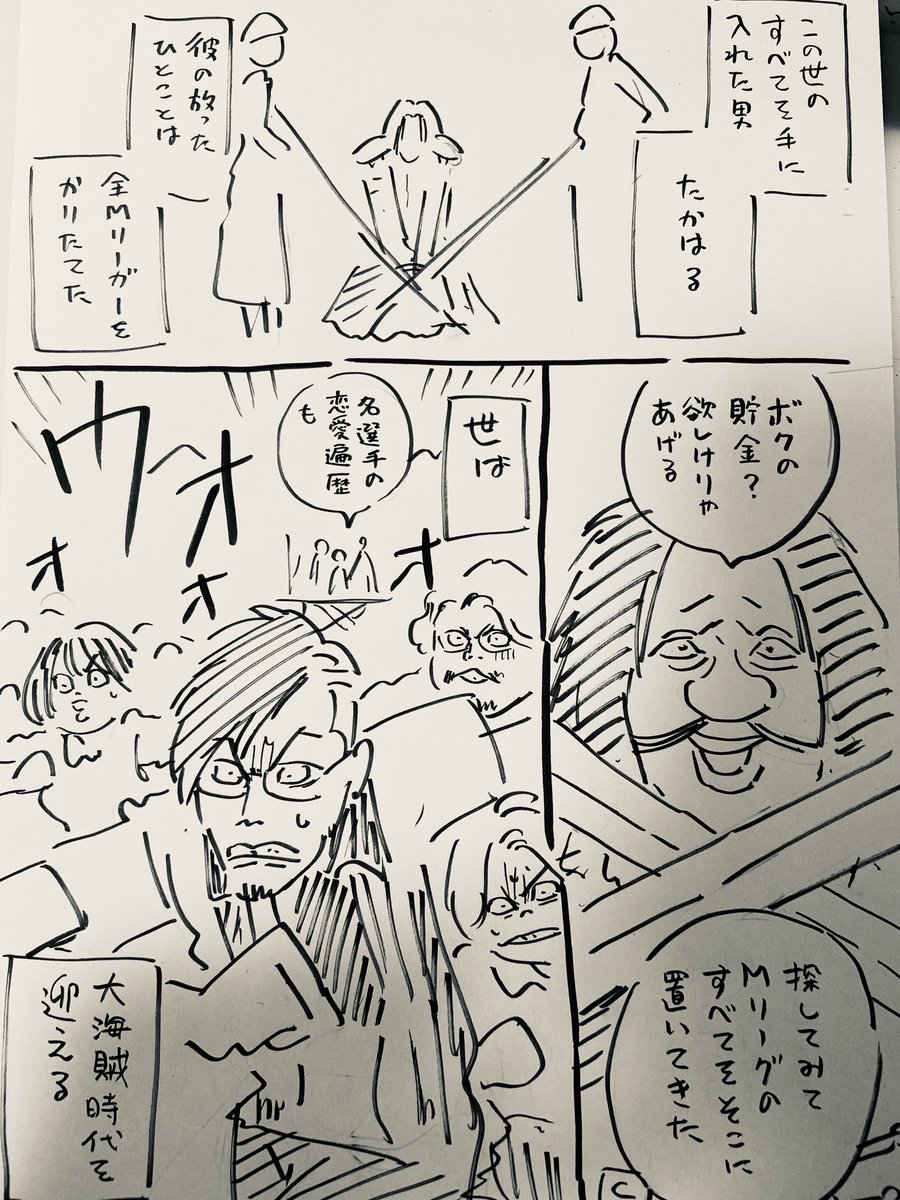 この世の
すべてを手に
入れた男
たかはる
彼の放った
ひとことは
全Mリーガーを
かりたてた
ボクの
貯金?
欲しけりゃ
あげる
探してみて
Mリーグの
すべてをそこに
置いてきた
世は
名選手の
恋愛遍歴
も
ウオオオオ
大海賊時代を
迎える